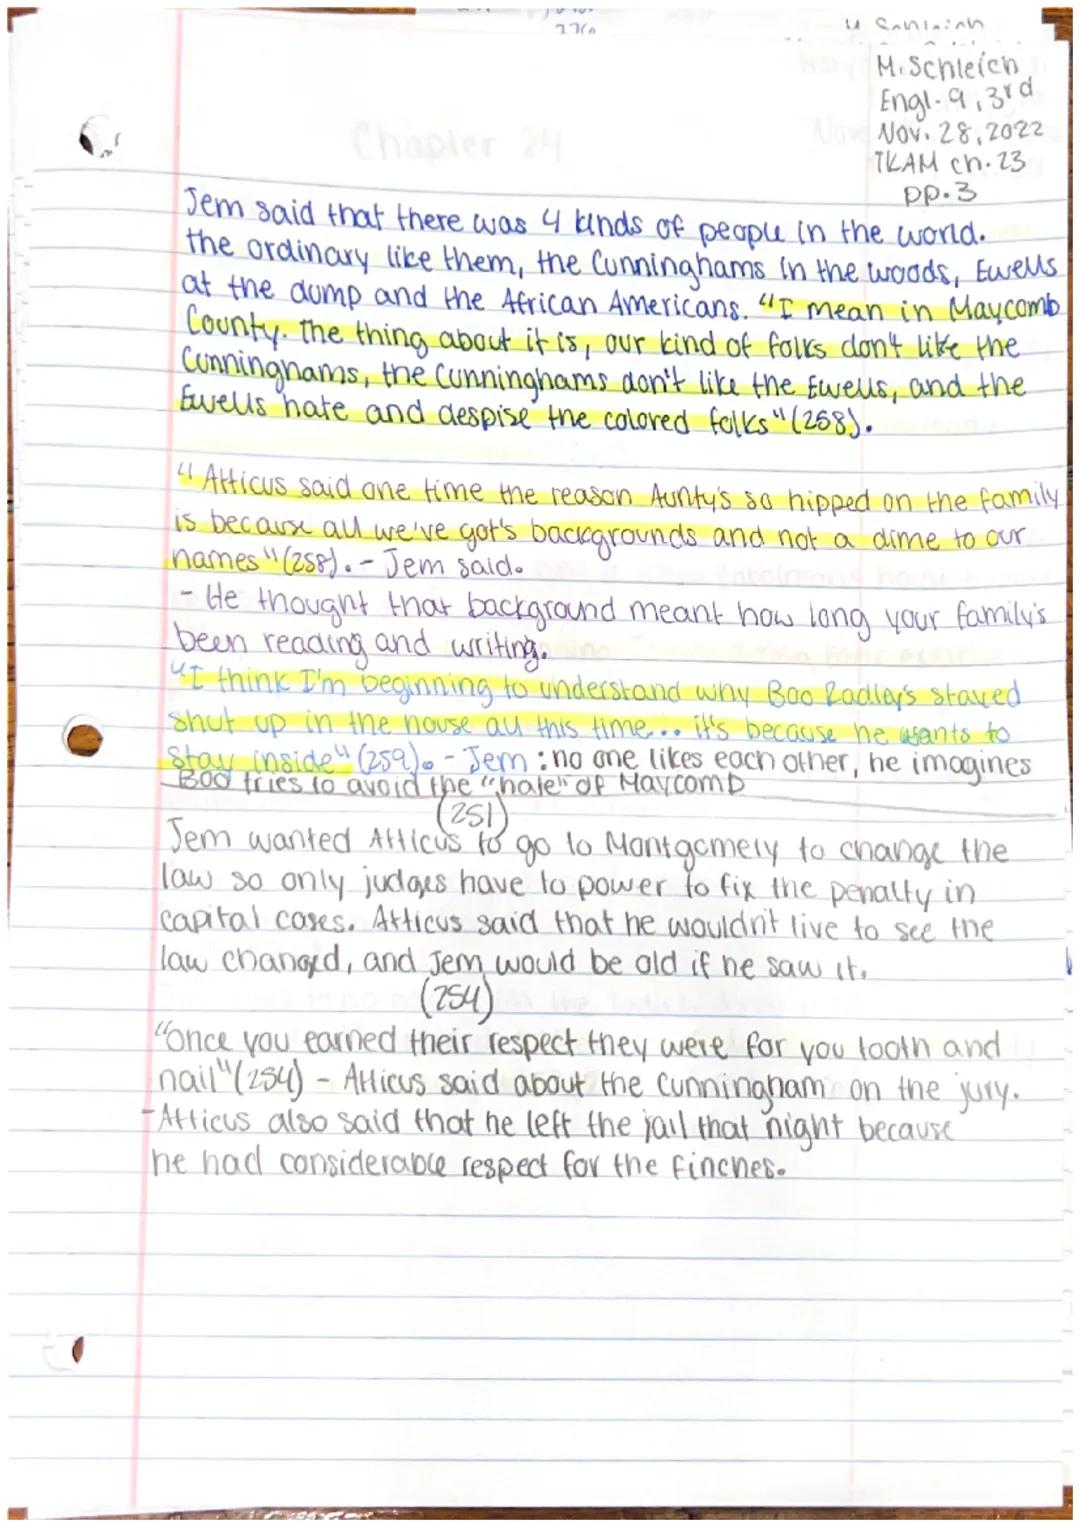 M. Schleich
Engl. 9, 3rd
Nov. 28, 2022
TKAM ch. 23
pp. 3
Chapter 24
Jem said that there was 4 kinds of people in the world.
the ordinary like them, the Cunninghams in the woods, Ewells
at the dump and the African Americans. "I mean in Maycomb
County. The thing about it is, our kind of folks don't like the
Cunninghams, the Cunninghams don't like the Ewells, and the
Ewells hate and despise the colored folks" (258).
"Atticus said one time the reason Aunty's so hipped on the family
is because all we've got's backgrounds and not a dime to our
names" (258). - Jem said.
- He thought that background meant how long your family's
been reading and writing.
"I think I'm beginning to understand why Boo Radley's stayed
shut up in the house all this time... it's because he wants to
stay inside" (259). - Jem : no one likes each other, he imagines
Boo tries to avoid the "hate" of Maycomb
(251)
Jem wanted Atticus to go to Montgomery to change the
law so only judges have to power to fix the penalty in
capital cases. Atticus said that he wouldn't live to see the
law changed, and Jem would be old if he saw it.
(254)
"Once you earned their respect they were for you tooth and
nail" (254) - Atticus said about the Cunningham on the jury.
- Atticus also said that he left the jail that night because
he had considerable respect for the Finches.